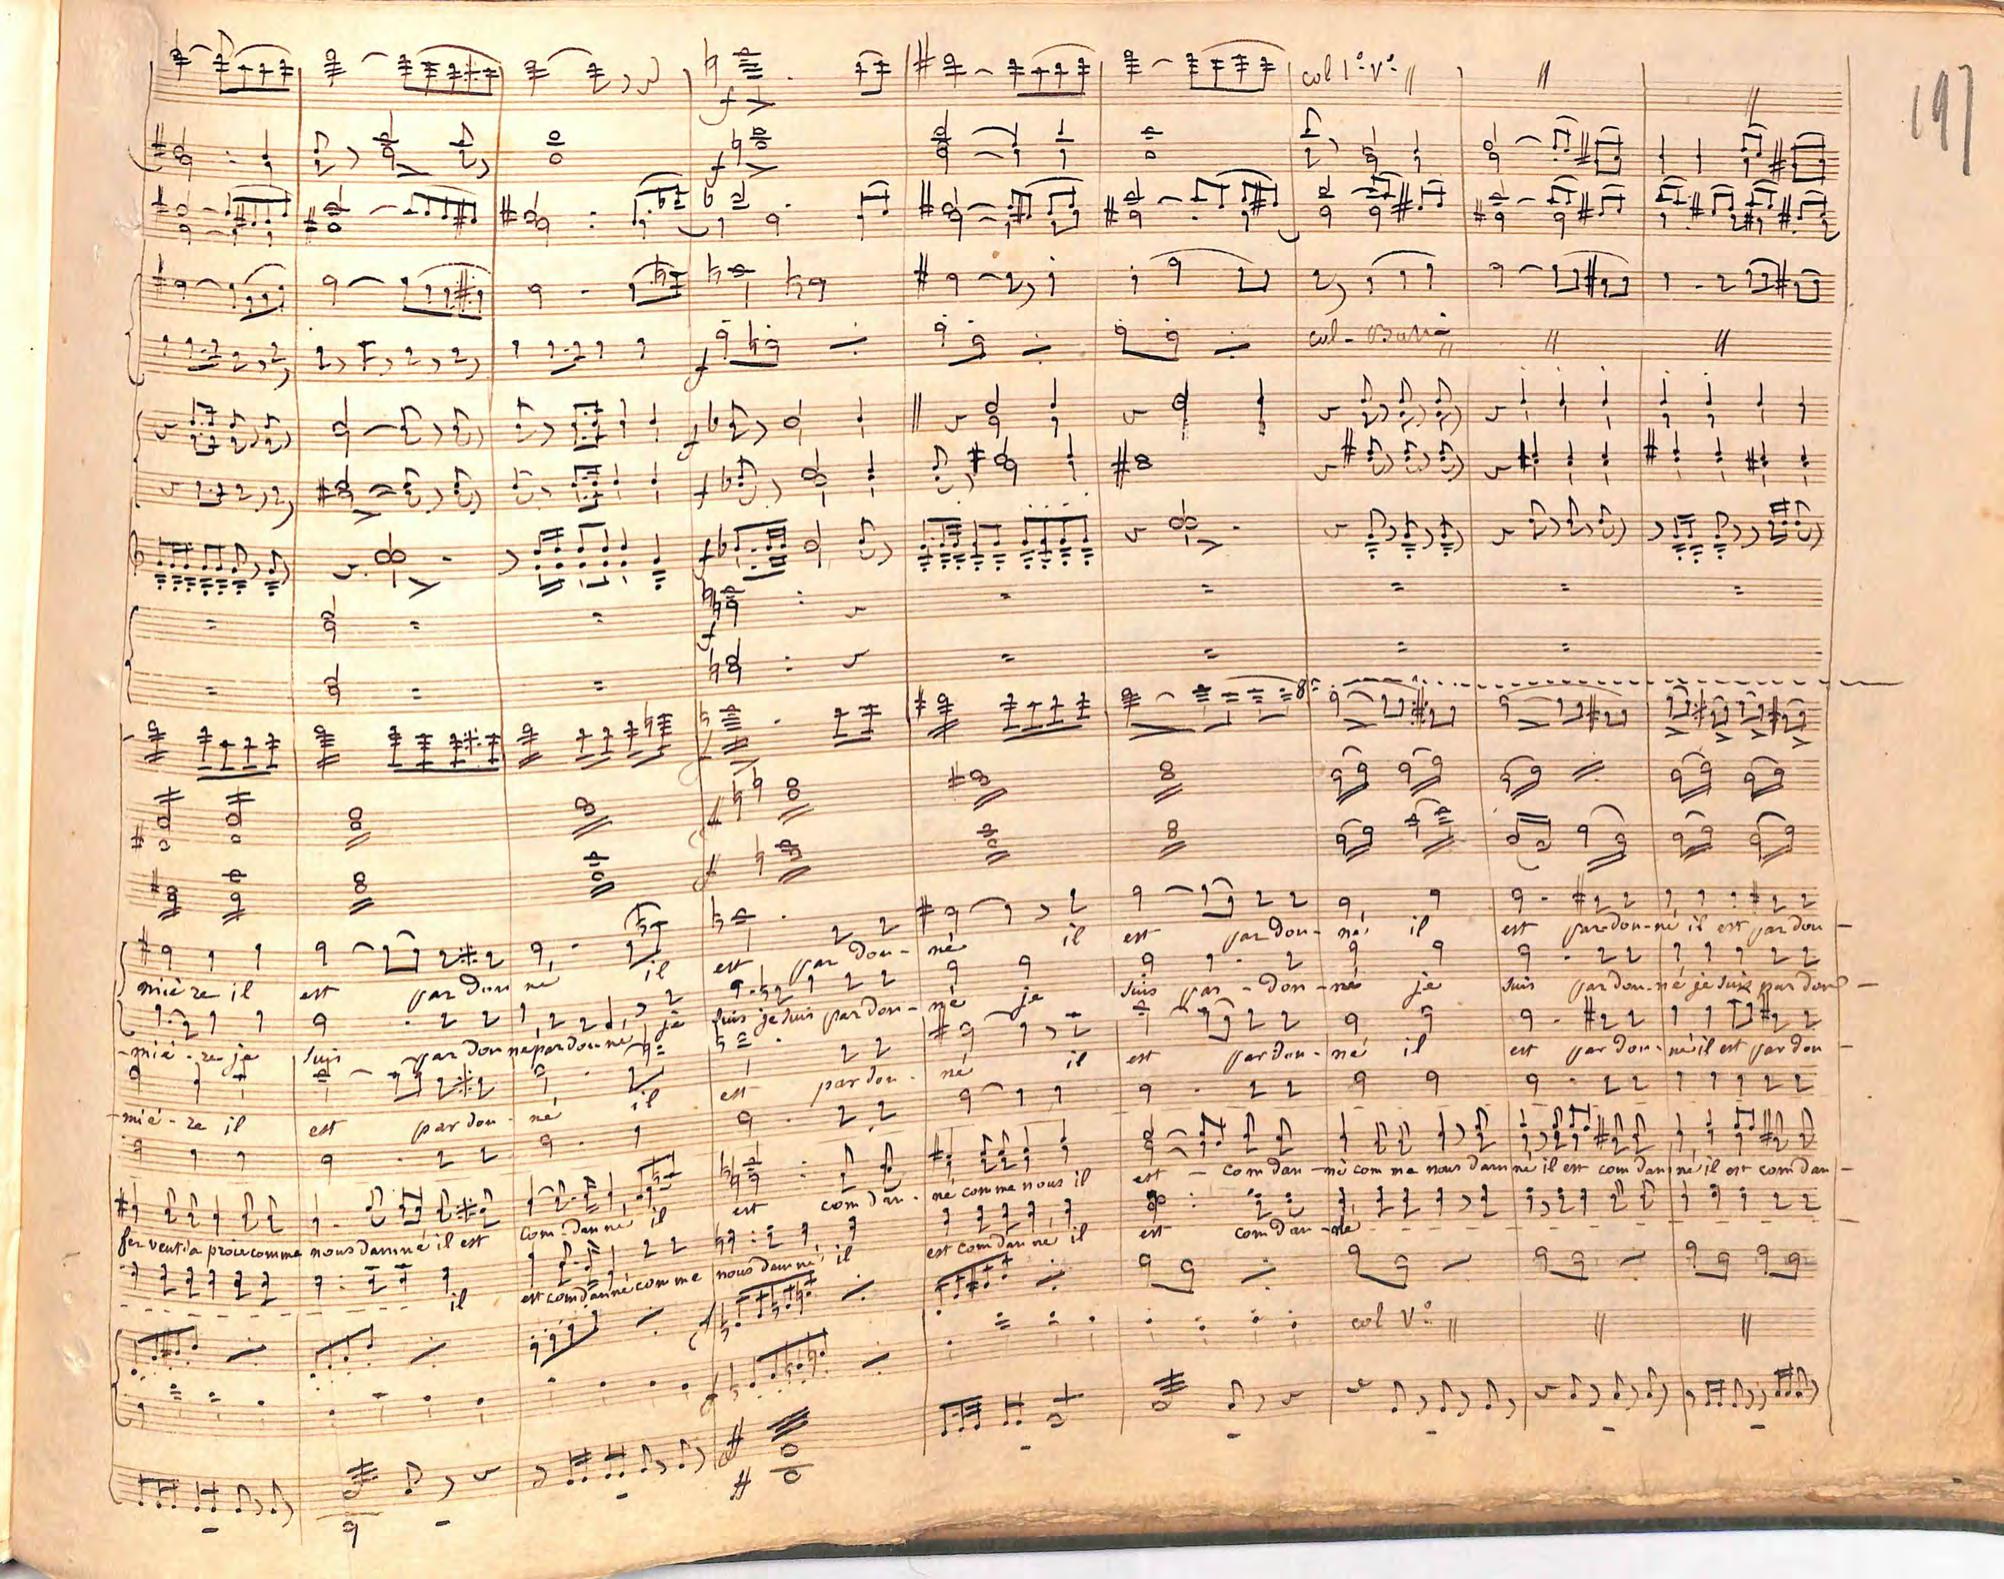 197
col 1º Vº
f
f
col-Bassi
f
f
f
f
8ª
f
f
mière il est par don né il est par don- né il est par don- né il est par-don-né il est par don-
-mié-re je suis par don né par don né je suis je suis par don-né je suis par-don-né je suis par don-né je suis par don-
-mié-re il est par don-né il est par don-né il est par don-né il est par don-né il est par don-
fer vent'a proie comme nous damné il est com-danné il est com dan-né comme nous il est - com dan-né com me nous damné il est com damné il est com dan-
il est com danné comme nous damné il est com danné il est com dan-né
col Vº